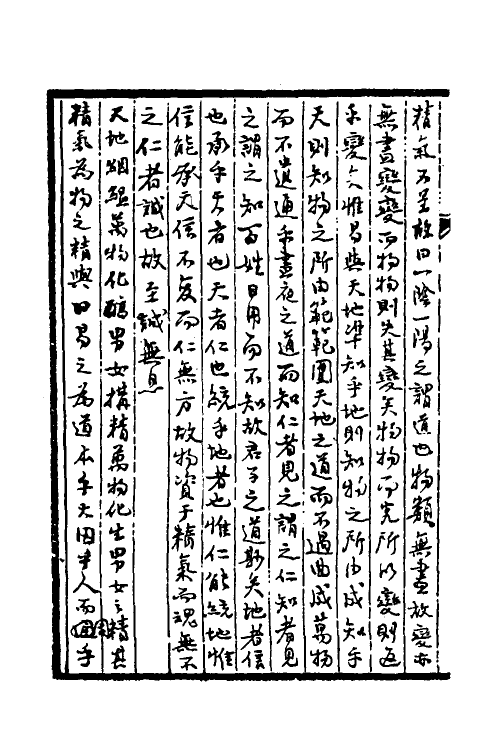 精氣不足故曰一陰一陽之謂道也物類無盡故變亦
無盡變變而物物則失其變矣物物而究所以變則返
乎變矣惟易與天地準知乎地則知物之所由成知乎
天則知物之所由範範圍天地之道而不過曲成萬物
而不遺通乎晝夜之道而知仁者見之謂之仁知者見
之謂之知百姓日用而不知故君子之道鮮矣地者信
也承乎天者也天者仁也統乎地者也惟仁能統地惟
信能承天信不爰而仁無方故物資于精氣而魂無不
之仁者誠也故至誠無息
天地絪緼萬物化醇男女構精萬物化生男女之精其
精氣為物之精與曰易之為道本乎天因乎人而通乎